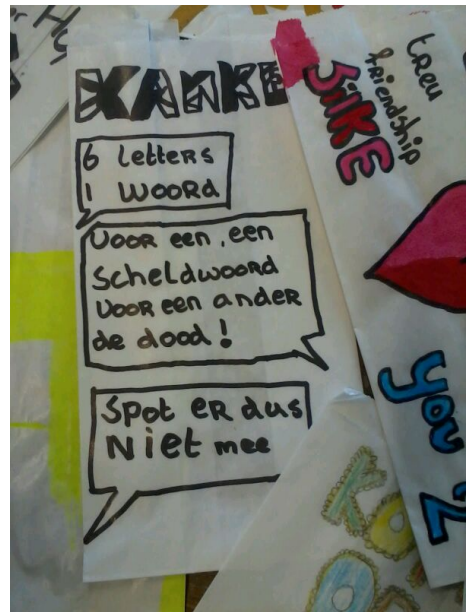 KANKE
6 Letters
1 WOORD
VOOR een, een
Scheldwoord
VOOR een ander
de dood!
Spot er dus
Niet mee
treu
friendship
SiLKE
you